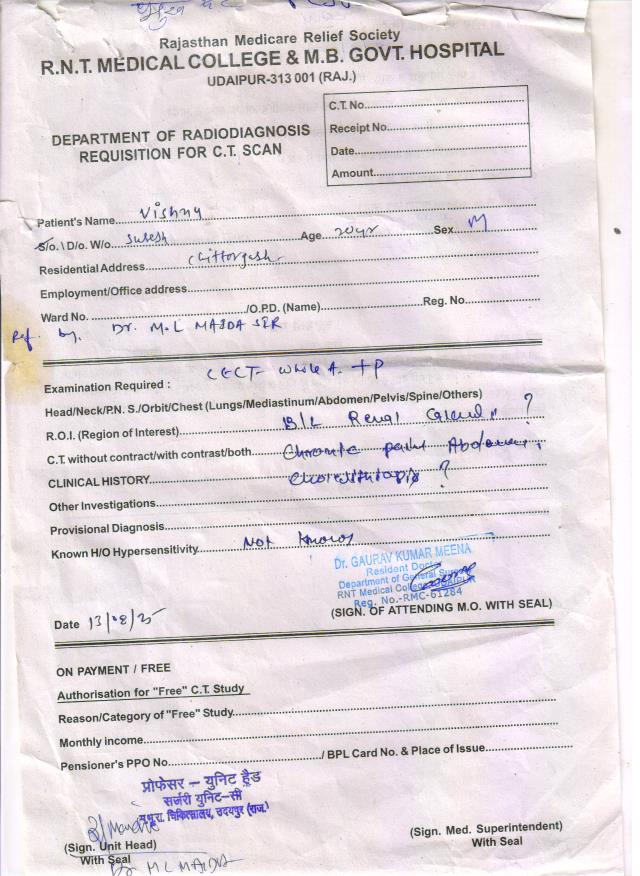 Rajasthan Medicare Relief Society
R.N.T. MEDICAL COLLEGE & M.B. GOVT. HOSPITAL
UDAIPUR-313 001 (RAJ.)
DEPARTMENT OF RADIODIAGNOSIS
REQUISITION FOR C.T. SCAN
C.T. No.
Receipt No.
Date
Amount
Patient's Name Vishnu
S/o.\D/o. W/o Suresh Age 20yr Sex M
Residential Address Chittorgarh
Employment/Office address
Ward No. /O.P.D. (Name) Reg. No.
Ref. by. Dr. M.L MAJDA SER
Examination Required : CECT Whole A + P
Head/Neck/P.N. S./Orbit/Chest (Lungs/Mediastinum/Abdomen/Pelvis/Spine/Others)
R.O.I. (Region of Interest) B/L Renal ?
C.T. without contract/with contrast/both Chronic pain Abdomen
CLINICAL HISTORY ?
Other Investigations
Provisional Diagnosis
Known H/O Hypersensitivity Not known
Dr. GAURAV KUMAR MEENA
Resident Doctor
Department of General Surgery
RNT Medical College, UDAIPUR
Reg. No.-RMC-61284
(SIGN. OF ATTENDING M.O. WITH SEAL)
Date 13/08/25
ON PAYMENT / FREE
Authorisation for "Free" C.T. Study
Reason/Category of "Free" Study
Monthly income
Pensioner's PPO No. / BPL Card No. & Place of Issue
प्रोफेसर – युनिट हैड
सर्जरी युनिट–सी
चिकित्सालय, उदयपुर (राज.)
(Sign. Unit Head)
With Seal
(Sign. Med. Superintendent)
With Seal
Dr M L MAJDA